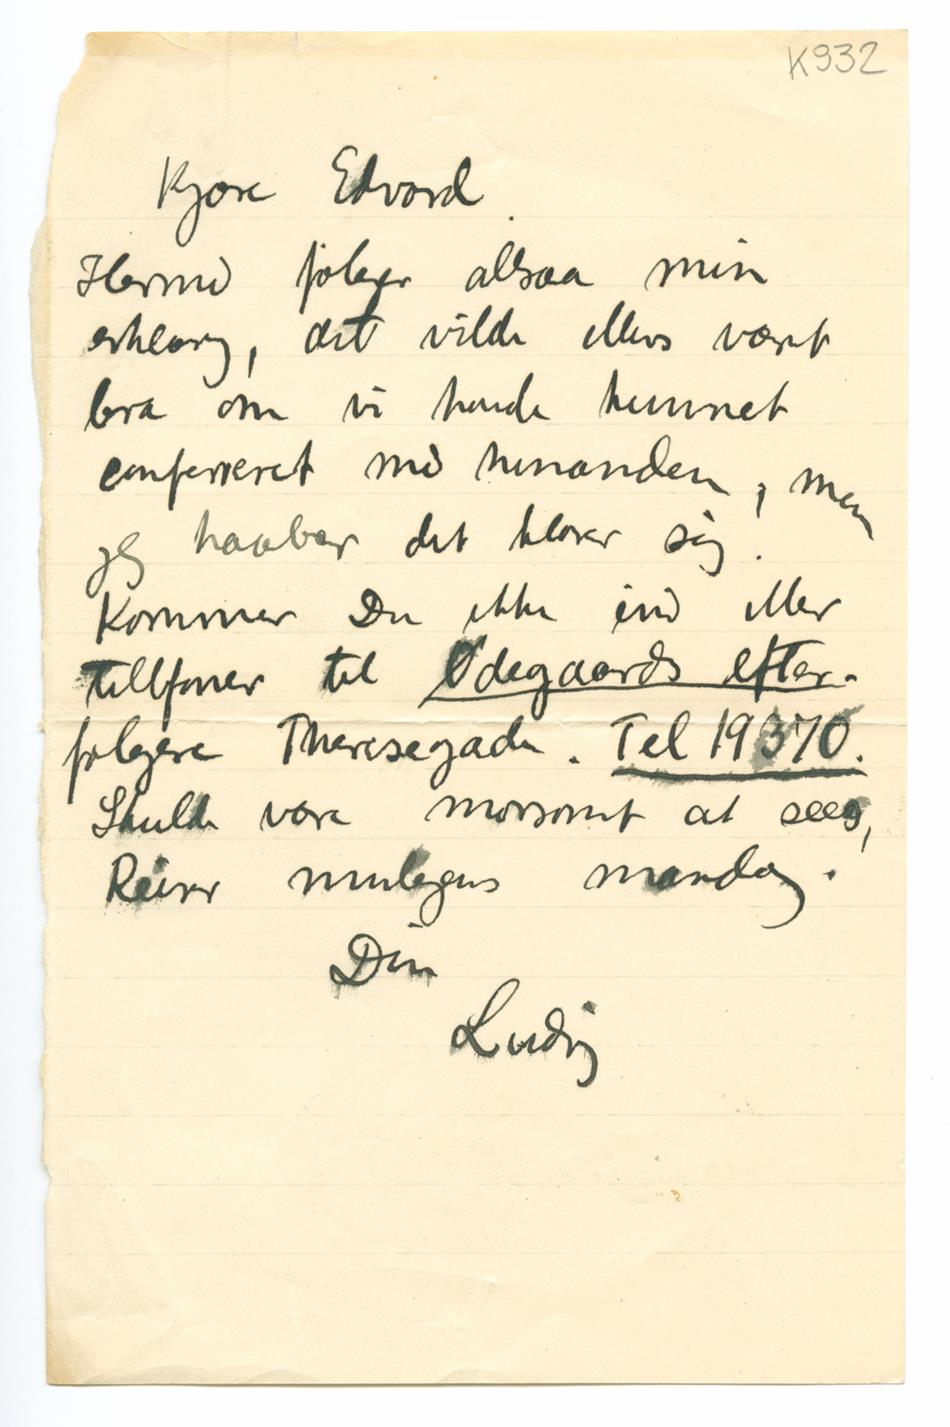 K932
Kjære Edvard.
Hermed følger altsaa min
erklæring, det vilde ellers været
bra om vi havde kunnet
conferreret med hinanden, men
jeg haaber det klarer sig.
Kommer Du ikke ind eller
tellfoner til Ødegaards efter-
følgere Theresegade. Tel 19370.
Skulde være morsomt at sees,
Reiser muligens mandag.
Din
Ludvig